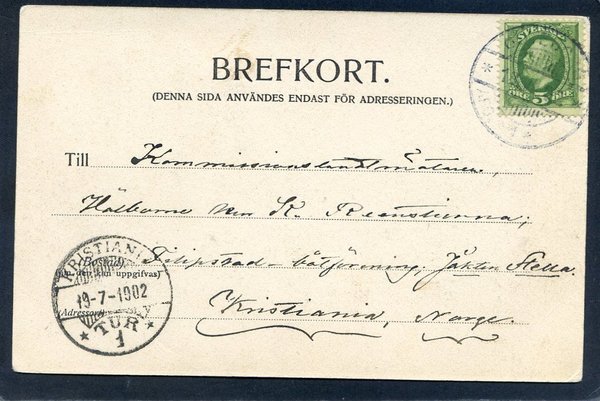 SVERIGE
5
BREFKORT.
(DENNA SIDA ANVÄNDES ENDAST FÖR ADRESSERINGEN.)
Till Kommissionslandtmätaren,
Hr K.
(Bostad) Filipstad - båtförening, Jakten Stella.
(om den kan uppgifvas)
(Adressort) Kristiania, Norge.
KRISTIANIA
19-7-1902
★ TUR ★
1